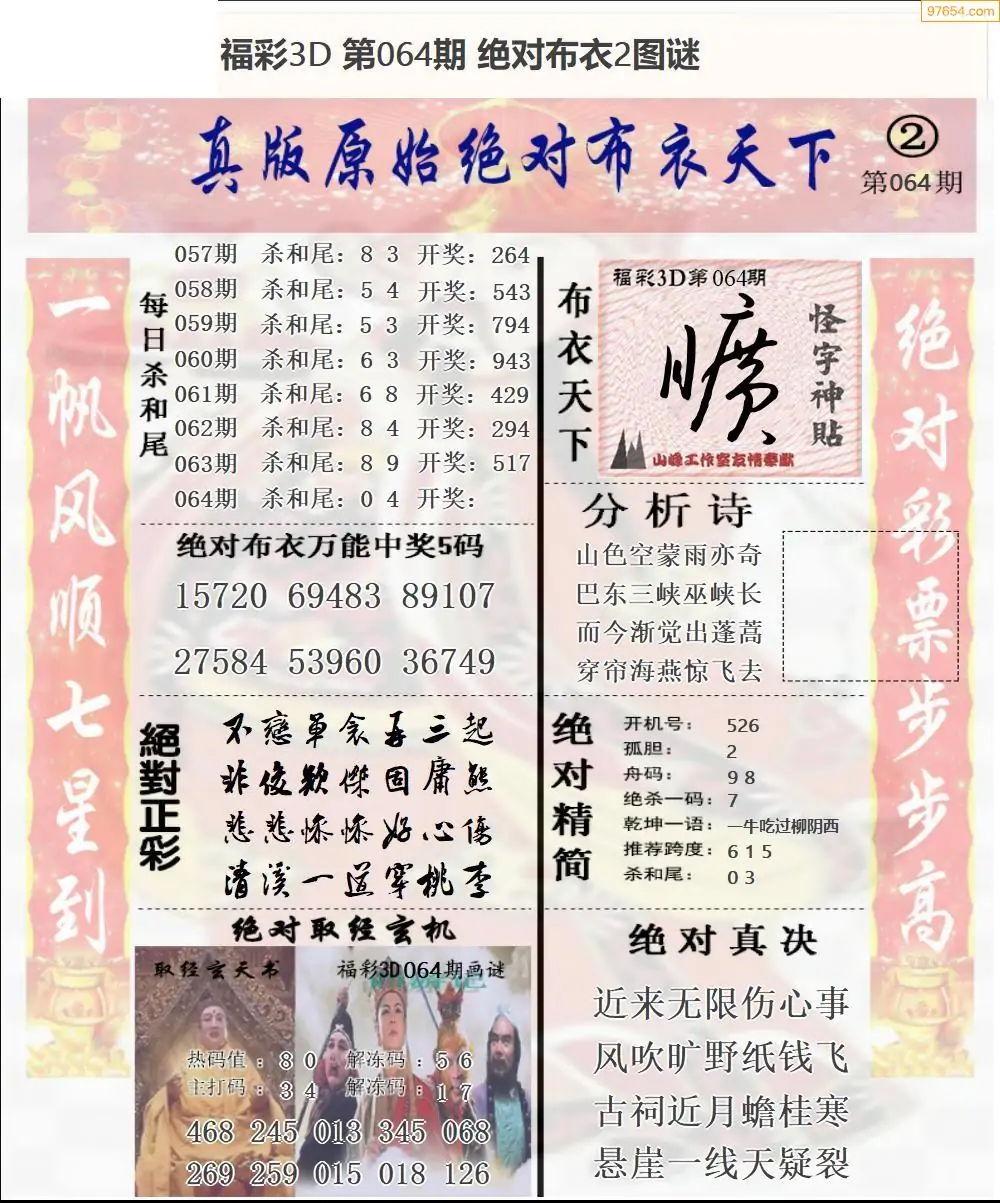 97654.com
福彩3D 第064期 绝对布衣2图谜
真版原始绝对布衣天下
②
第064期
一帆风顺七星到
每日杀和尾
057期 杀和尾：8 3 开奖：264
058期 杀和尾：5 4 开奖：543
059期 杀和尾：5 3 开奖：794
060期 杀和尾：6 3 开奖：943
061期 杀和尾：6 8 开奖：429
062期 杀和尾：8 4 开奖：294
063期 杀和尾：8 9 开奖：517
064期 杀和尾：0 4 开奖：
绝对布衣万能中奖5码
15720 69483 89107
27584 53960 36749
布衣天下
福彩3D第064期
曠
怪字神貼
山峰工作室友情奉献
分析诗
山色空蒙雨亦奇
巴东三峡巫峡长
而今渐觉出蓬蒿
穿帘海燕惊飞去
绝对彩票步步高
絕對正彩
不戀單衾再三起
非俊歎傑固庸態
悲悲慽慽好心傷
清溪一道穿桃李
绝对精简
开机号： 526
孤胆： 2
舟码： 9 8
绝杀一码：7
乾坤一语：一牛吃过柳阴西
推荐跨度：6 1 5
杀和尾： 0 3
绝对取经玄机
取经玄天书
福彩3D064期画谜
热码值：8 0 解冻码：5 6
主打码：3 4 解冻码：1 7
468 245 013 345 068
269 259 015 018 126
绝对真决
近来无限伤心事
风吹旷野纸钱飞
古祠近月蟾桂寒
悬崖一线天疑裂